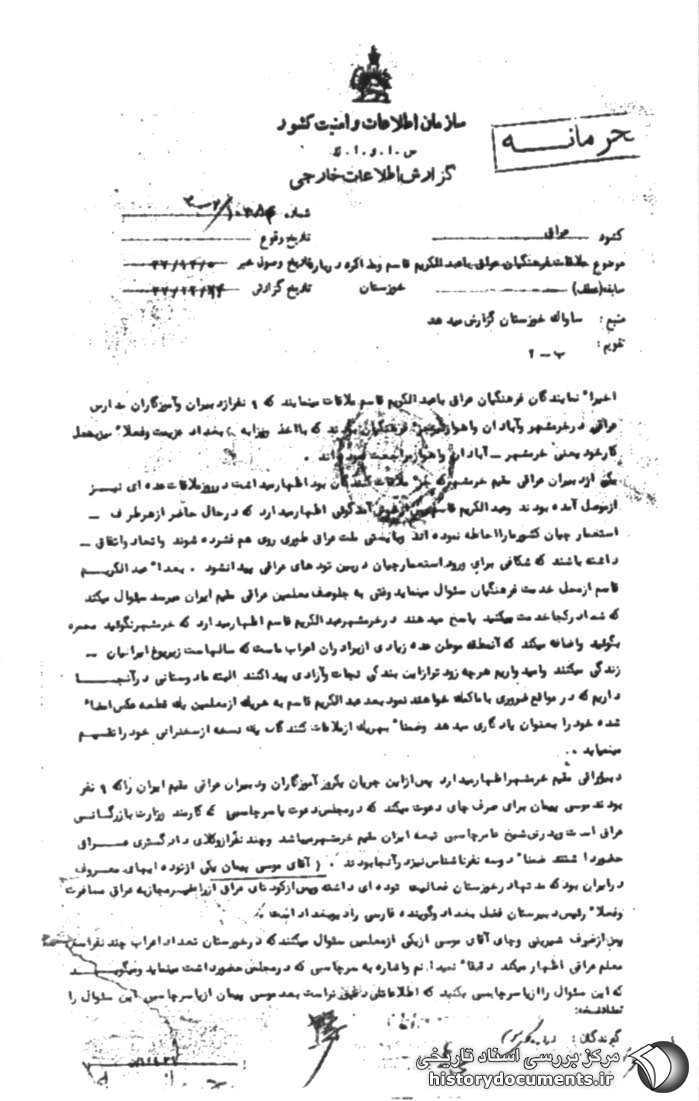 سازمان اطلاعات و امنیت کشور
س . ا . و . ا . ک
گزارش اطلاعات خارجی
محرمانه
شماره
کشور عراق
تاریخ وقوع
موضوع ملاقات فرهنگیان عراق با عبدالکریم قاسم و مذاکره درباره
تاریخ وصول خبر ۳۷/۱۲/۵
سابقه (عطف) خوزستان
تاریخ گزارش ۳۷/۱۲/۱۴
منبع : ساواک خوزستان گزارش میدهد
تقویم : ب - ۲
اخیراً نمایندگان فرهنگیان عراق با عبدالکریم قاسم ملاقات مینمایند که ۹ نفر از دبیران و آموزگاران مدارس
عراقی در خرمشهر و آبادان و اهواز فرهنگیان بودند که با اخذ روزابه بغداد عزیمت و فعلاً
کار خود یعنی خرمشهر - آبادان و اهواز مراجعت نموده اند .
یکی از دبیران عراقی مقیم خرمشهر که جزء ملاقات کنندگان بود اظهار میداشت در روز ملاقات عده ای نیز
از موصل آمده بودند و عبدالکریم قاسم پس از خوش آمد گوئی اظهار میدارد که در حال حاضر از هر طرف -
استعمار چیان کشور ما را احاطه نموده اند و بایستی ملت عراق طوری روی هم فشرده شوند و اتحاد و اتفاق -
داشته باشند که شکافی برای ورود استعمار چیان در بین توده های عراقی پیدا نشود . بعداً عبدالکریم
قاسم از محل خدمت فرهنگیان سئوال مینماید وقتی به جلو صف معلمین عراقی مقیم ایران میرسد سئوال میکند
که شما در کجا خدمت میکنید پاسخ میدهند در خرمشهر عبدالکریم قاسم اظهار میدارد که خرمشهر نگوئید محمره
بگوئید و اضافه میکند که آنمنطقه موطن عده زیادی از برادران اعراب ماست که سالهاست زیر یوغ ایرانیان -
زندگی میکنند و امیدواریم هر چه زودتر از این بندگی نجات و آزادی پیدا کنند البته ما دوستانی در آنجا
داریم که در مواقع ضروری با ما کمک خواهند نمود بعد عبدالکریم قاسم به هر یک از معلمین یک قطعه عکس امضاء
شده خود را بعنوان یادگاری میدهد و ضمناً بهر یک از ملاقات کنندگان یک نسخه از سخنرانی خود را تقدیم
مینماید .
دبیر عراقی مقیم خرمشهر اظهار میدارد پس از این جریان یکروز آموزگاران و دبیران عراقی مقیم ایران را که ۹ نفر
بودند موسی پیمان برای صرف چای دعوت میکند که در مجلس دعوت یاسر چاسبی که کارمند وزارت بازرگانی
عراق است و پدرش شیخ عامر چاسبی تبعه ایران مقیم خرمشهر میباشد و چند نفر از وکلای دادگستری عراق
حضور داشتند ضمناً دو سه نفر ناشناس نیز در آنجا بودند . ( آقای موسی پیمان یکی از توده ایهای معروف
در ایران بود که مدتها در خوزستان فعالیت توده ای داشته و پس از کودتای عراق از راه غیر مجاز به عراق مسافرت
و فعلاً رئیس دبیرستان فضل بغداد و گوینده فارسی رادیو بغداد است .
پس از صرف شیرینی و چای آقای موسی از یکی از معلمین سئوال میکنند که در خوزستان تعداد اعراب چند نفر است
معلم عراقی اظهار میکند دقیقاً نمیدانم و اشاره به سر چاسبی که در مجلس حضور داشت مینماید و میگوید
که این سئوال را از یاسر چاسبی بکنید که اطلاعاتش دقیق تر است بعد موسی پیمان از یاسر چاسبی این سئوال را
تعداد نسخه :
گیرندگان :
مرکز بررسی اسناد تاریخی
historydocuments.ir